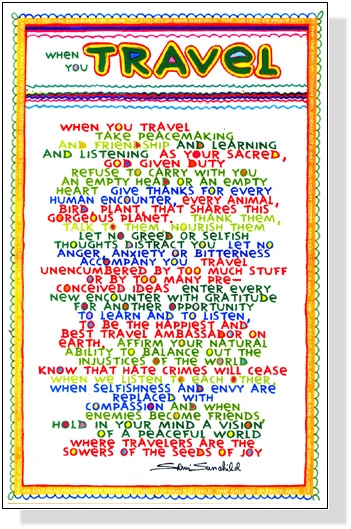 WHEN YOU TRAVEL
WHEN YOU TRAVEL
TAKE PEACEMAKING
AND FRIENDSHIP AND LEARNING
AND LISTENING AS YOUR SACRED,
GOD GIVEN DUTY
REFUSE TO CARRY WITH YOU
AN EMPTY HEAD OR AN EMPTY
HEART GIVE THANKS FOR EVERY
HUMAN ENCOUNTER, EVERY ANIMAL,
BIRD PLANT THAT SHARES THIS
GORGEOUS PLANET. THANK THEM,
TALK TO THEM, NOURISH THEM
LET NO GREED OR SELFISH
THOUGHTS DISTRACT YOU LET NO
ANGER, ANXIETY OR BITTERNESS
ACCOMPANY YOU TRAVEL
UNENCUMBERED BY TOO MUCH STUFF
OR BY TOO MANY PRE-
CONCEIVED IDEAS ENTER EVERY
NEW ENCOUNTER WITH GRATITUDE
FOR ANOTHER OPPORTUNITY
TO LEARN AND TO LISTEN,
TO BE THE HAPPIEST AND
BEST TRAVEL AMBASSADOR ON
EARTH, AFFIRM YOUR NATURAL
ABILITY TO BALANCE OUT THE
INJUSTICES OF THE WORLD
KNOW THAT HATE CRIMES WILL CEASE
WHEN WE LISTEN TO EACH OTHER,
WHEN SELFISHNESS AND ENVY ARE
REPLACED WITH
COMPASSION AND WHEN
ENEMIES BECOME FRIENDS,
HOLD IN YOUR MIND A VISION
OF A PEACEFUL WORLD
WHERE TRAVELERS ARE THE
SOWERS OF THE SEEDS OF JOY
Sami Sunchild